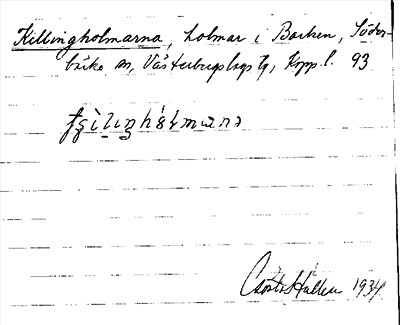 Killingholmarna, holmar i Barken, Söder-
bärke sn, Västerbergslags tg, Kopp. l. 93
Gösta Hallén 1934